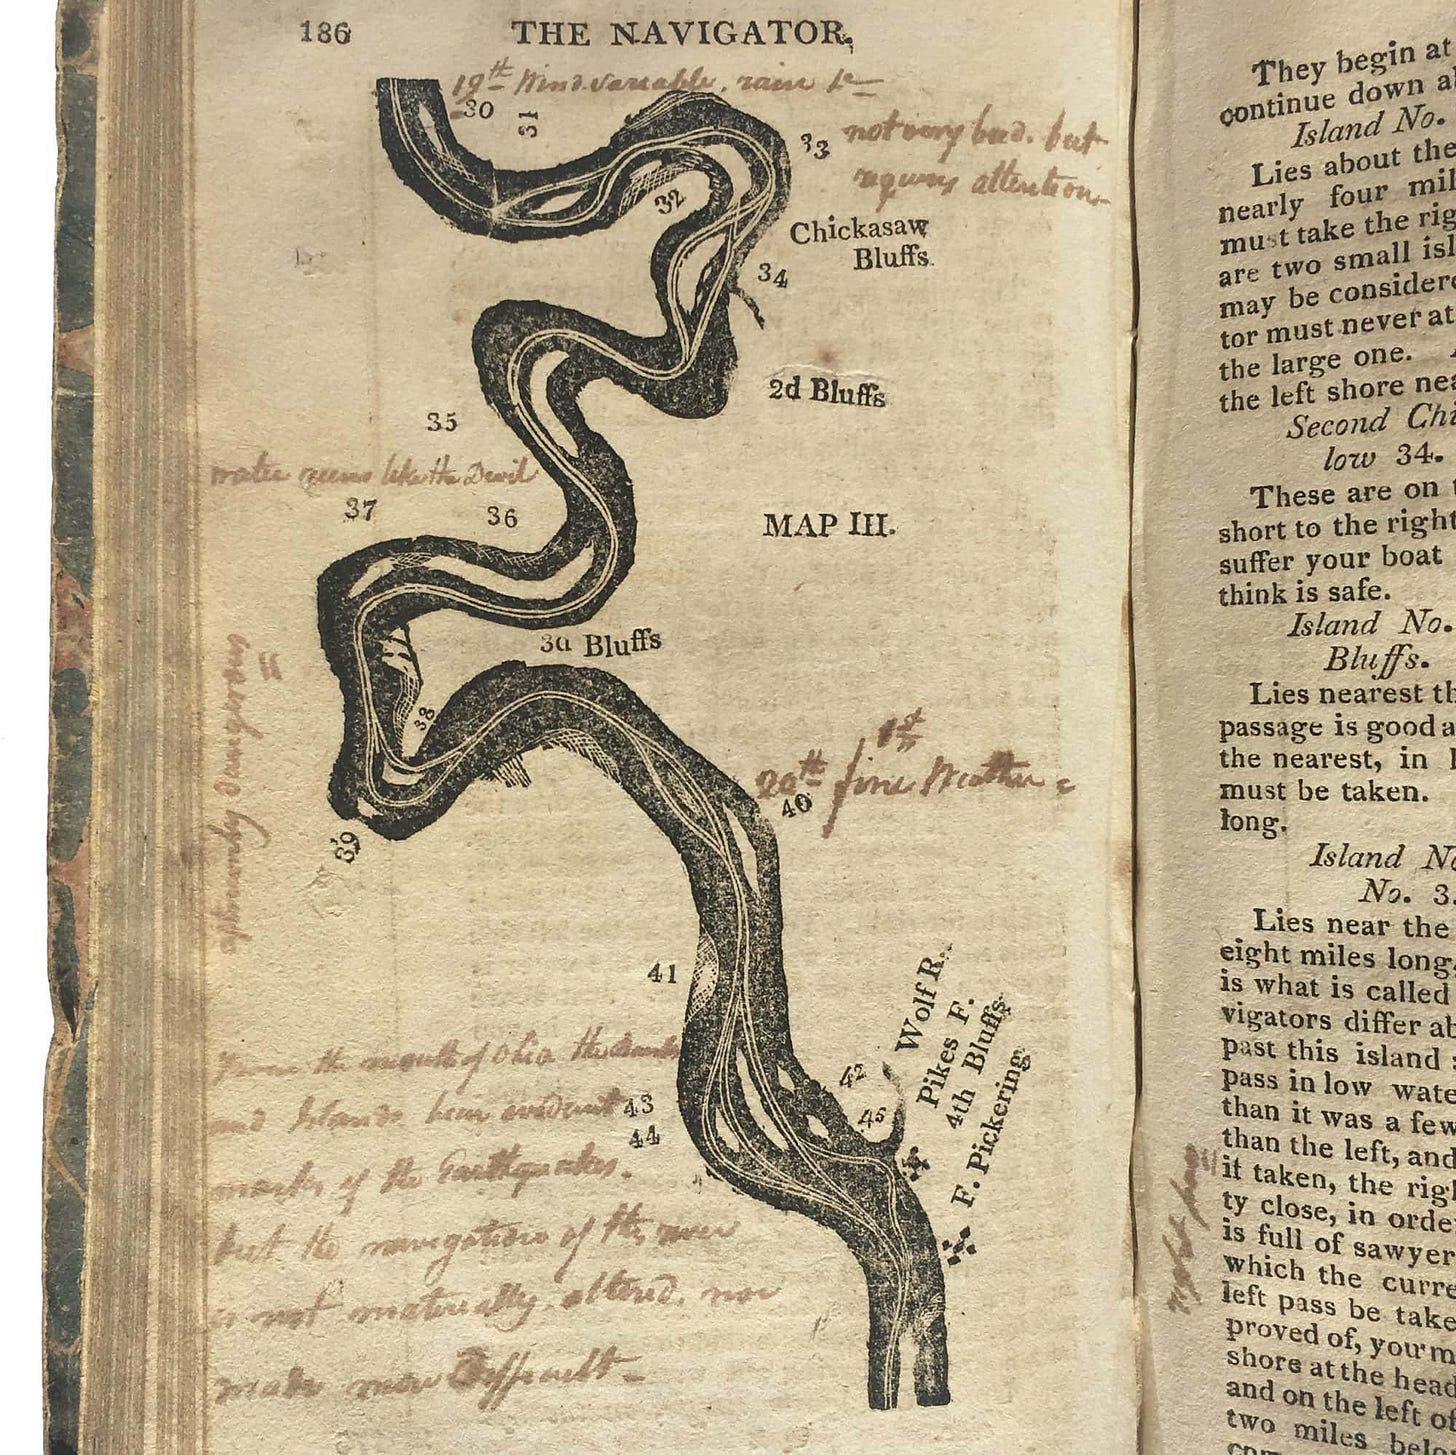 186
THE NAVIGATOR,
19th Wind variable, rain &c
30
31
33
not very bad, but
requires attention
32
Chickasaw
Bluffs.
34
2d Bluffs
35
water runs like the Devil
37
36
MAP III.
3d Bluffs
extremely dangerous
38
39
20th fine Weather
40
41
Wolf R.
Pikes F.
4th Bluffs
F. Pickering
42
45
43
44
the mouth of Ohio the
and Islands bear evident
marks of the Earthquakes.
but the navigation of the river
is not materially altered, nor
made more difficult
They begin at
continue down
Island No.
Lies about the
nearly four
must take the
are two small
may be
tor must never at
the large one.
the left shore
Second
low 34.
These are on
short to the right
suffer your boat
think is safe.
Island No.
Bluffs.
Lies nearest
passage is good
the nearest, in
must be taken.
long.
Island
No. 3
Lies near the
eight miles long
is what is called
vigators differ
past this island
pass in low
than it was a few
than the left, and
it taken, the
ty close, in
is full of
which the
left pass be
proved of, you
shore at the head
and on the left
two miles